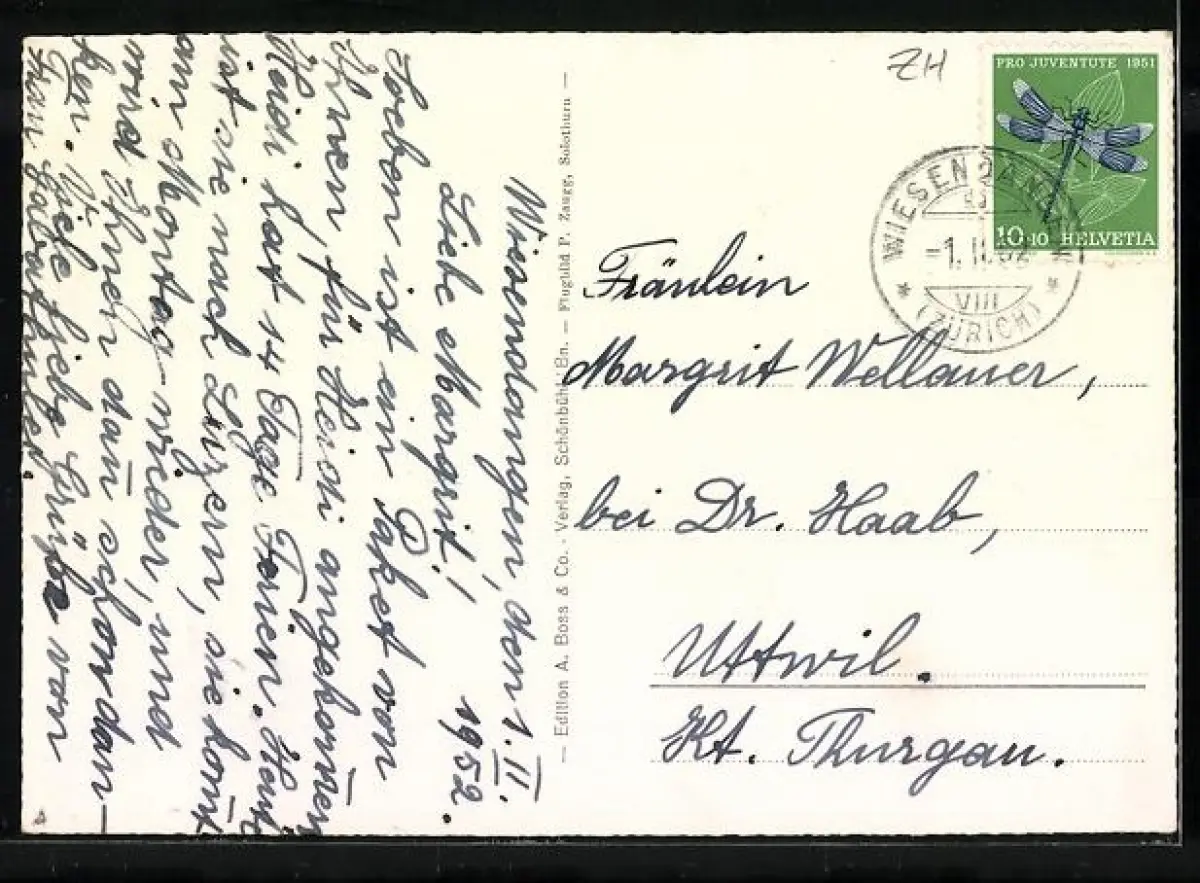 ZH
PRO JUVENTUTE 1951
10+10 HELVETIA
WIESENDANGEN
-1. II. 52
VIII
(ZÜRICH)
Fräulein
Margrit Wellauer,
bei Dr. Haab,
Uttwil.
Kt. Thurgau.
— Edition A. Boss & Co. - Verlag, Schönbühl-Bn. — Flugbild P. Zaugg, Solothurn —
Wiesendangen, den 1. II.
1952.
Liebe Margrit!
Soeben ist ein Paket von
Ihnen für Heidi angekom̅en
Heidi hat 14 Tage Ferien. Heute
ist sie nach Luzern, sie kom̅t
am Montag wieder, und
wird Ihnen dan̅ schon dan-
ken. Viele liebe Grüße von